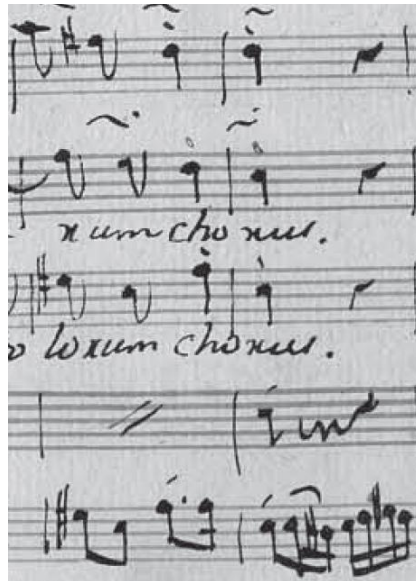 - rum chorus.
o lorum chorus.